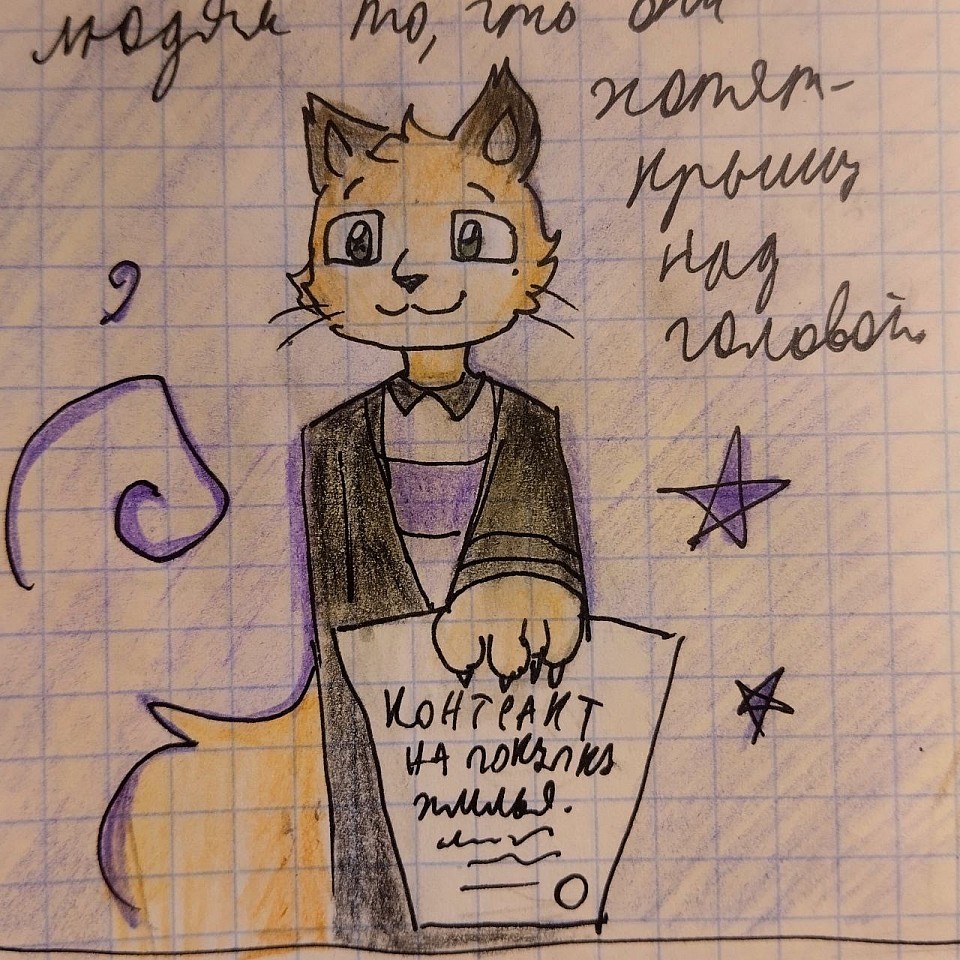 людям то, что они
хотят-
крышу
над
головой.
КОНТРАКТ
НА ПОКУПКУ
жилья.